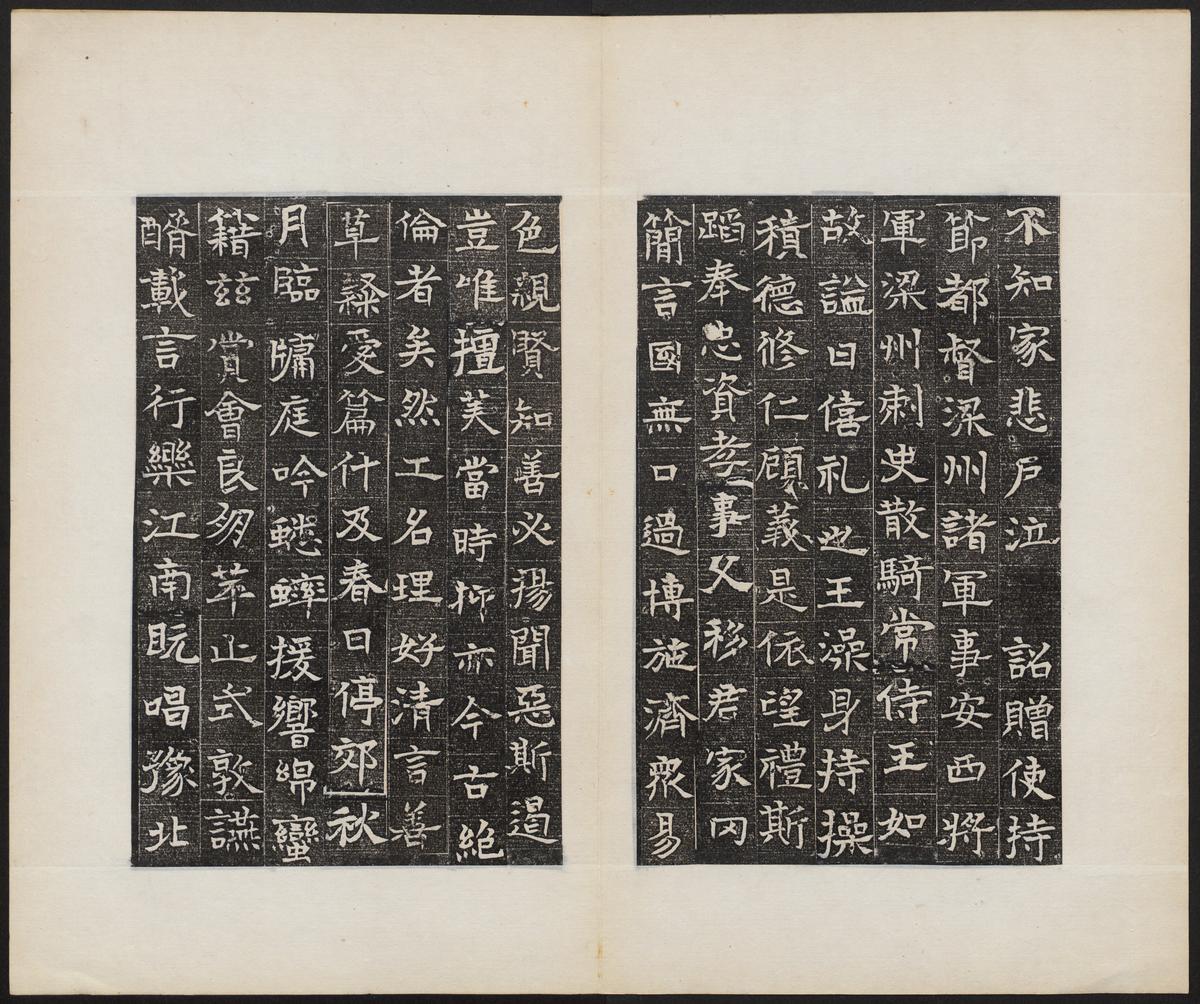 不知家悲戶泣　詔贈使持
節都督梁州諸軍事安西將
軍梁州刺史散騎常侍王如
故謚曰僖礼也王澡身持操
積德修仁顧義是依望禮斯
蹈奉忠資孝事父移君家罔
簡言國無口過博施濟衆易
色親賢知善必揚聞惡斯遏
豈唯擅美當時抑亦今古絶
倫者矣然工名理好清言善
草隸愛篇什及春日停郊秋
月臨牖庭吟蟋蟀援響綿蠻
籍兹賞會良朋萃止式敦讌
醑載言行樂江南既唱豫北